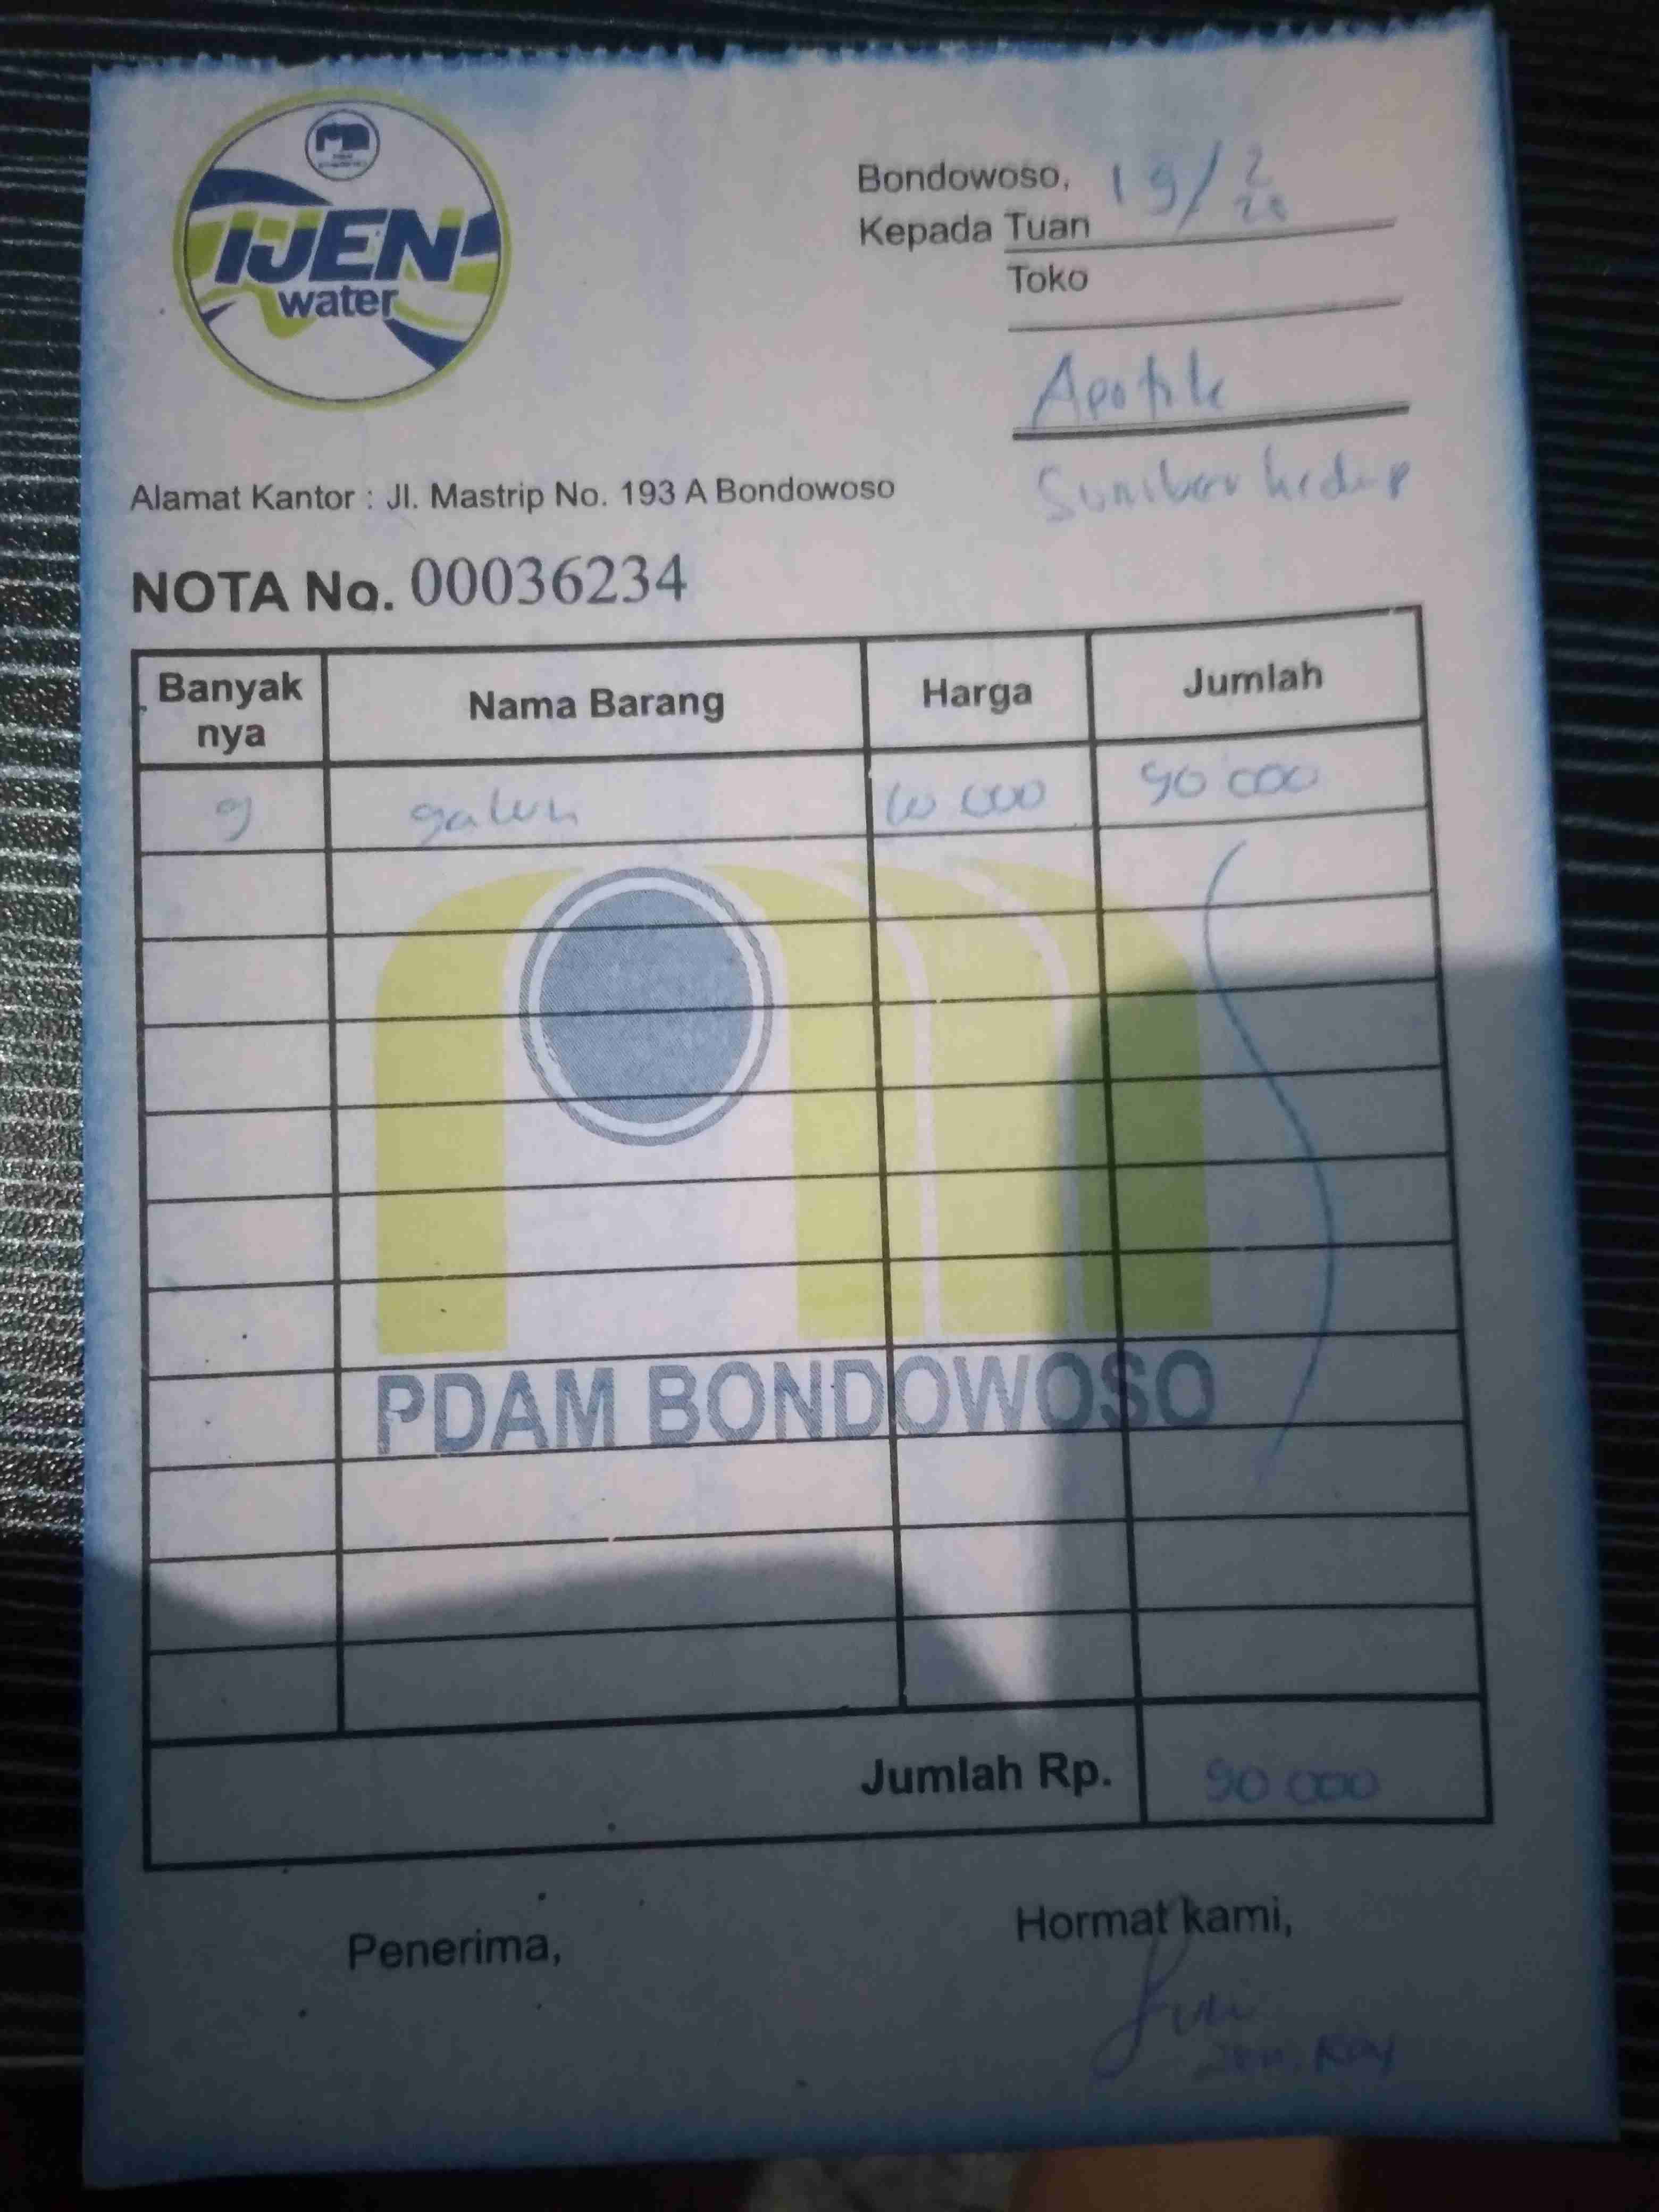 IJEN
water
Bondowoso, 19/2
Kepada Tuan
Toko
Apotik
Sumber hidup
Alamat Kantor : Jl. Mastrip No. 193 A Bondowoso
NOTA No. 00036234
Banyak nya Nama Barang Harga Jumlah
9 galon 10 000 90 000
PDAM BONDOWOSO
Jumlah Rp. 90 000
Penerima, Hormat kami,